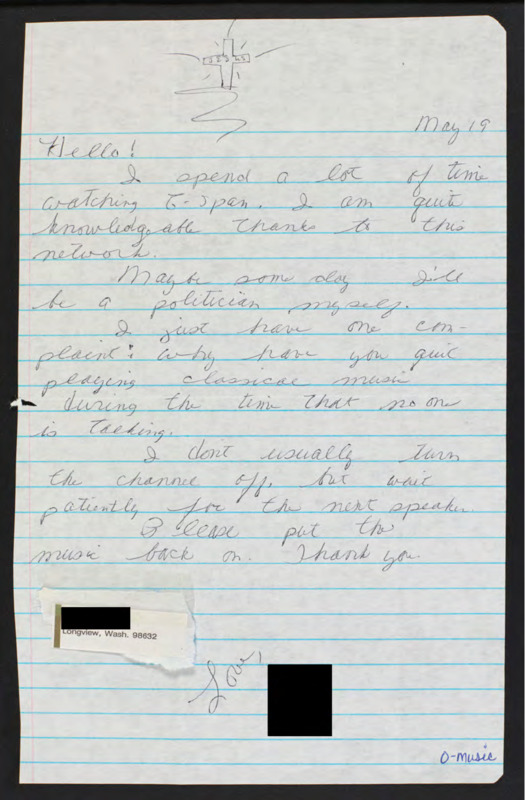 JESUS
May 19
Hello!
I spend a lot of time
watching C-Span. I am quite
knowledgeable thanks to this
network.
Maybe some day I'll
be a politician myself.
I just have one com-
plaint: Why have you quit
playing classical music
during the time that no one
is talking.
I don't usually turn
the channel off, but wait
patiently for the next speaker.
Please put the
music back on. Thank you.
Longview, Wash. 98632
Love,
O-music